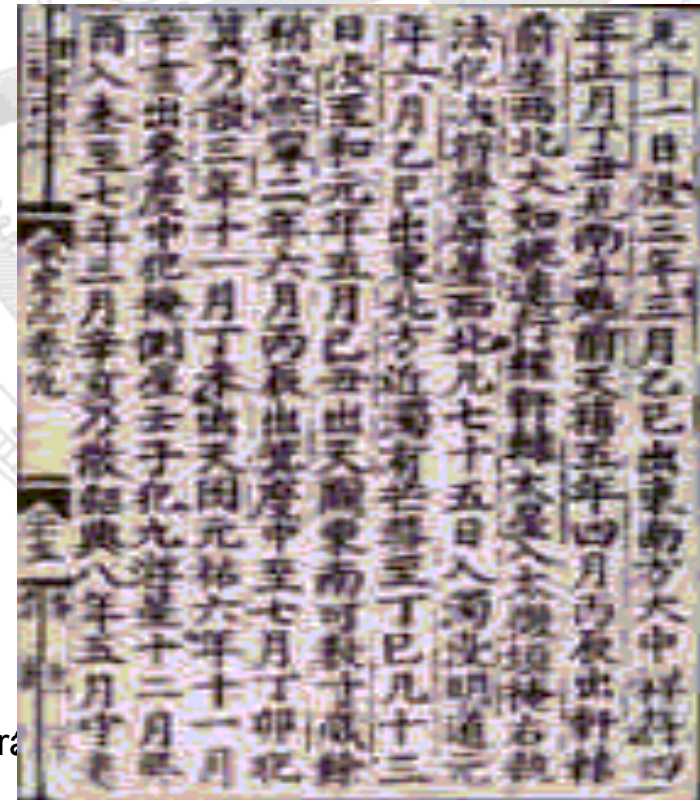 凡十一日沒三年三月乙巳出東南方大中祥符四
年正月丁丑見南斗魁前天禧五年四月丙辰出軒轅
前星西北大如桃速行經軒轅太星入太微垣掩右執
法犯次將歷屏星西北凡七十五日入濁沒明道元
年六月乙巳出東北方近濁有芒彗至丁巳凡十三
日沒至和元年五月己丑出天關東南可數寸歲餘
稍沒熙寧二年六月丙辰出箕度中至七月丁卯犯
箕乃散三年十一月丁未出天囷元祐六年十一月
辛亥出參度中犯掩側星壬子犯九斿星十二月癸
酉入奎至七年三月辛亥乃散紹興八年五月守婁
卷九
rá